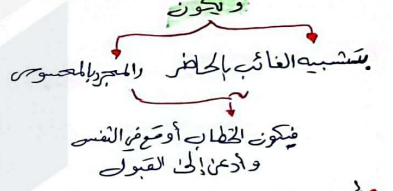 ويكون
بتشبيه الغائب بالحاضر والمجرد بالمحسوس
فيكون الخطاب أوقع في النفس
وأدعى إلى القبول